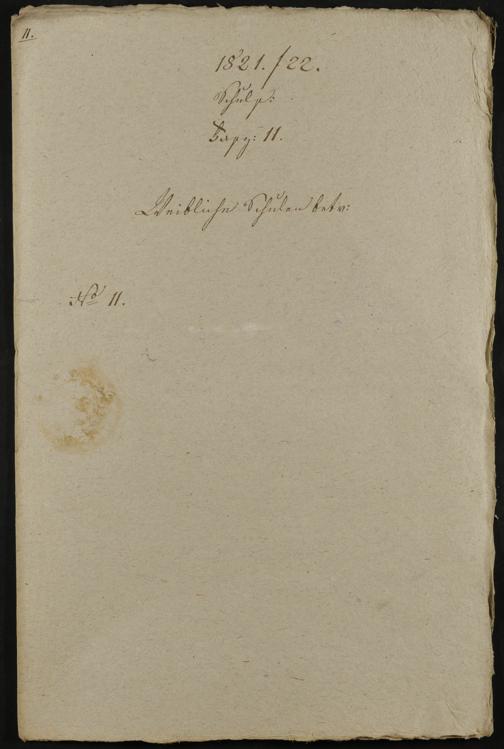 11.
1821./22.
Schulf:
Fasz: 11.
Weibliche Schulen betr:
No 11.